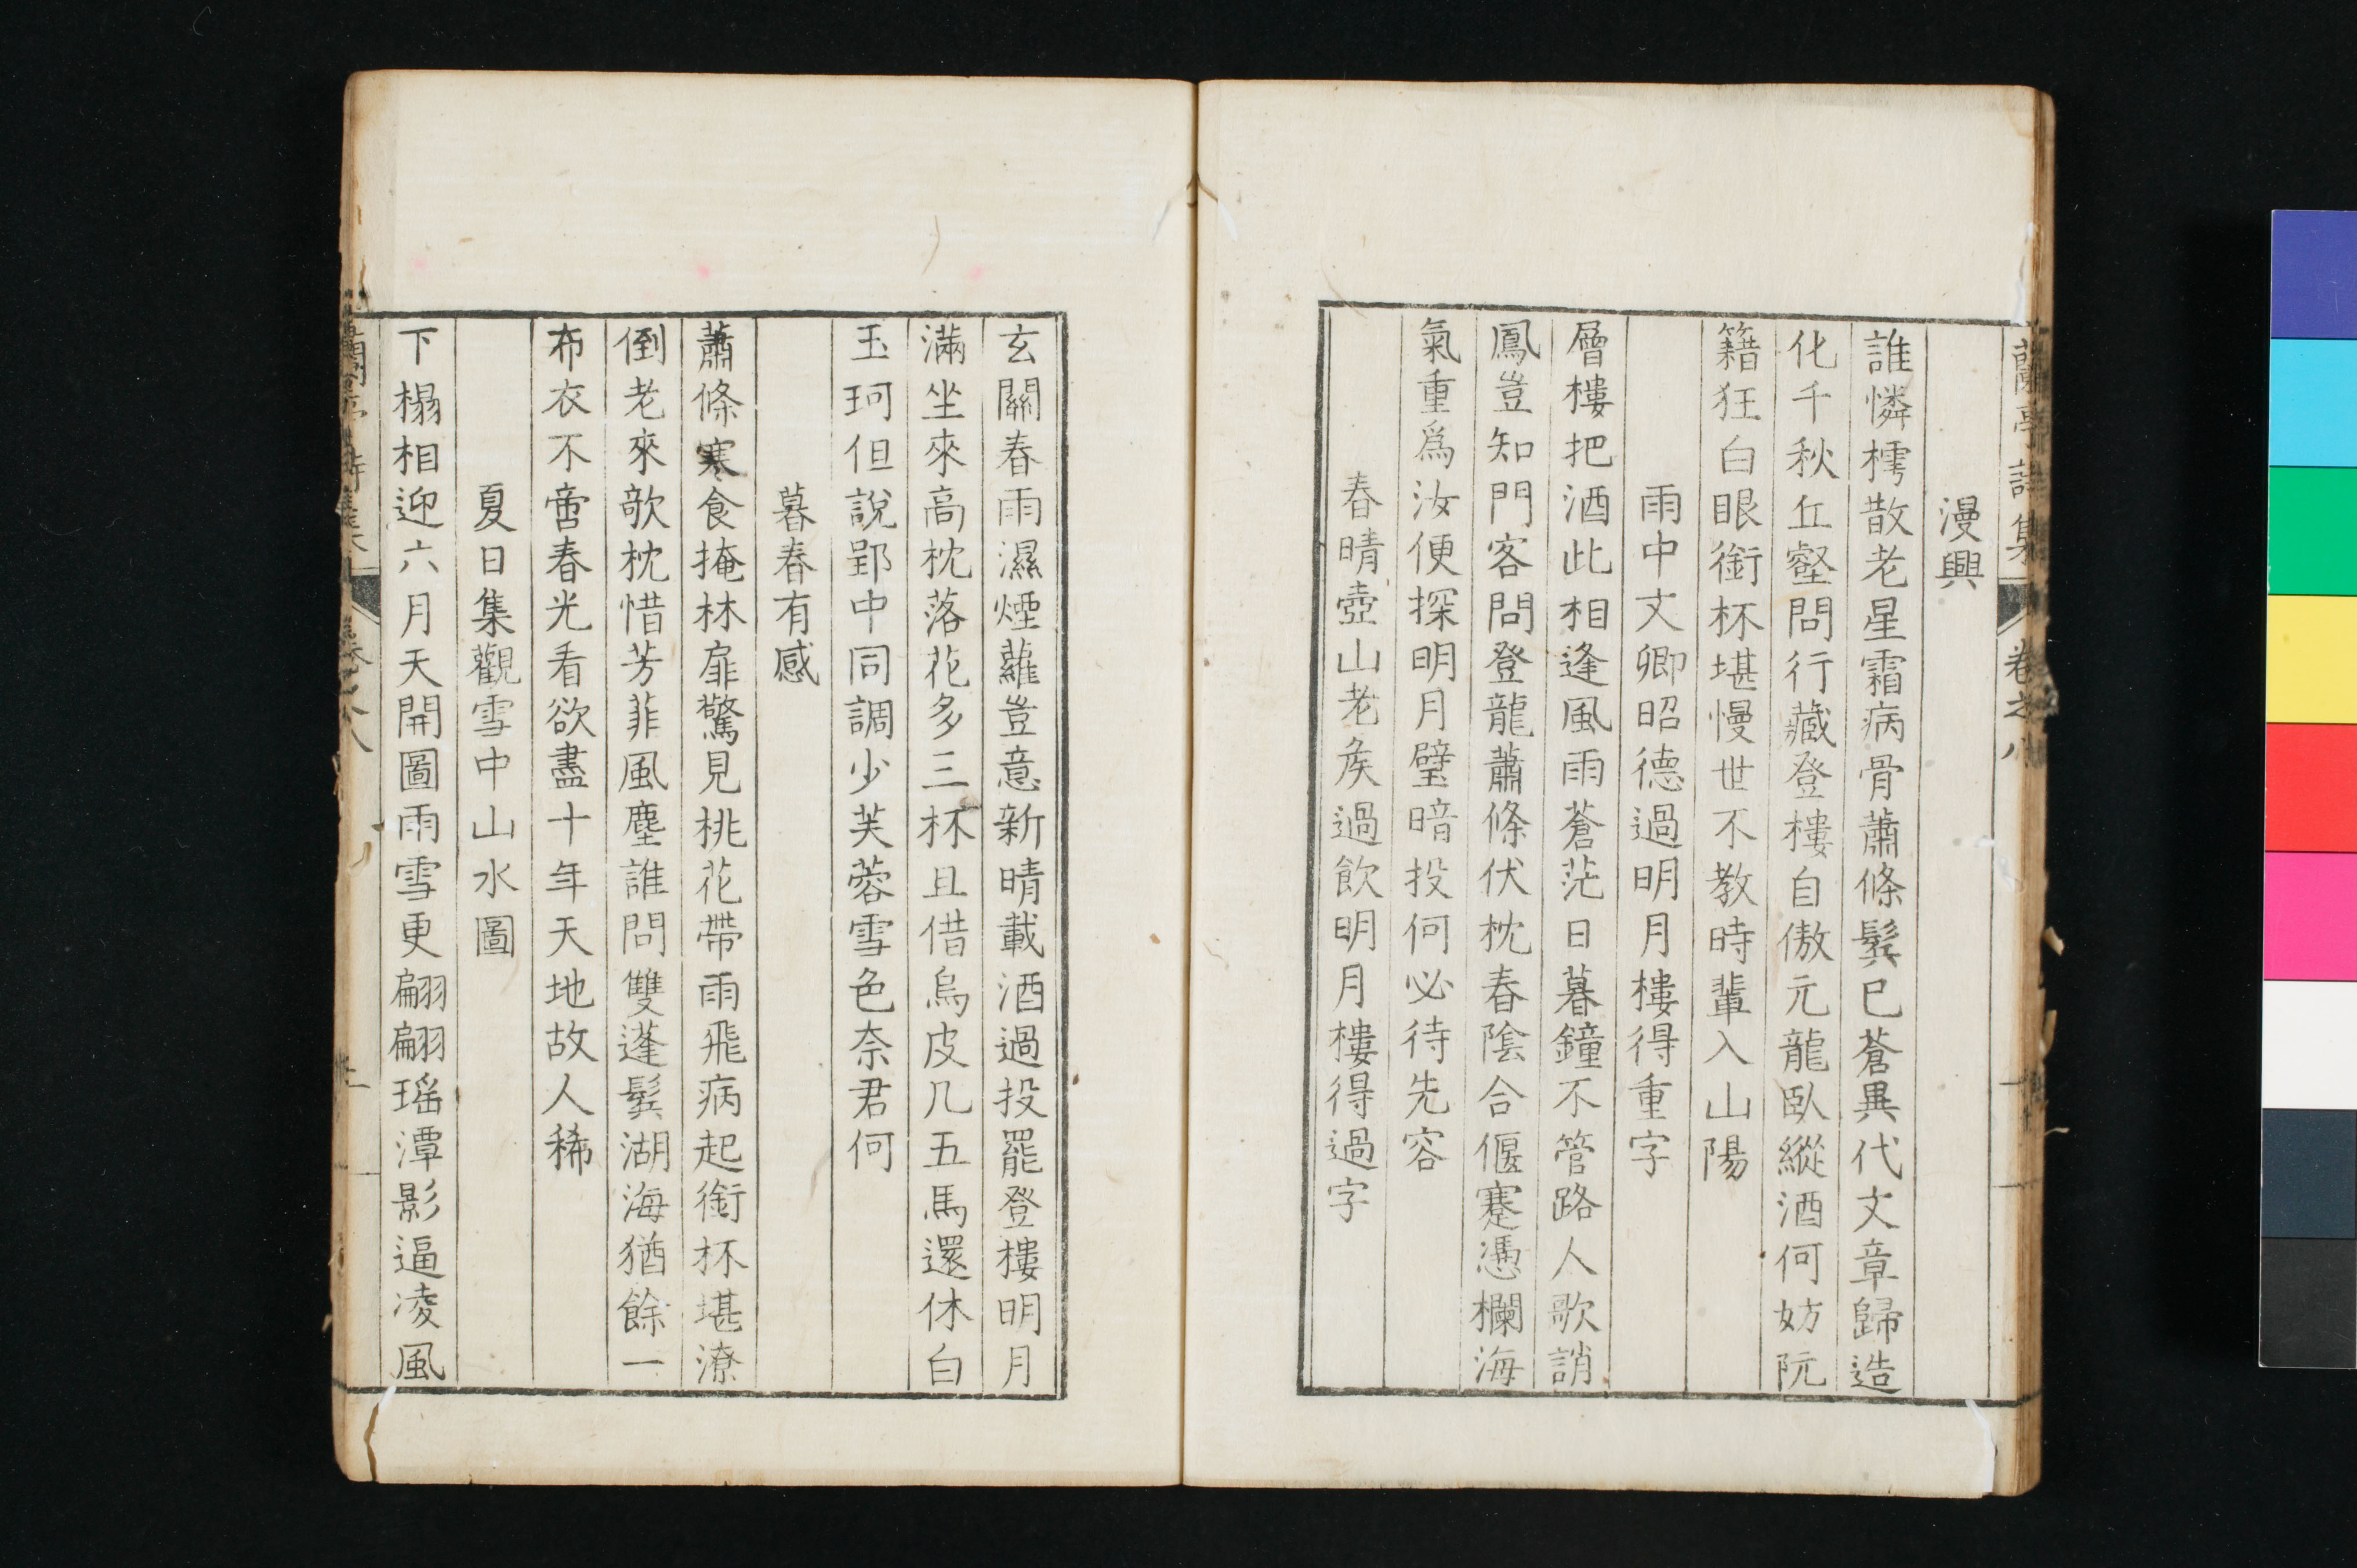 蘭亭詩集 卷之八
漫興
誰憐樗散老星霜病骨蕭條鬂已蒼異代文章歸造
化千秋丘壑問行藏登樓自傲元龍臥縱酒何妨阮
籍狂白眼銜杯堪慢世不教時輩入山陽
雨中文卿昭德過明月樓得重字
層樓把酒此相逢風雨蒼茫日暮鐘不管路人歌誚
鳳豈知門客問登龍蕭條伏枕春陰合偃蹇憑欄海
氣重爲汝便探明月璧暗投何必待先容
春晴壺山老矦過飮明月樓得過字
玄關春雨濕煙蘿豈意新晴載酒過投罷登樓明月
滿坐來高枕落花多三杯且借烏皮几五馬還休白
玉珂但說郢中同調少芙蓉雪色奈君何
暮春有感
蕭條寒食掩林扉驚見桃花帶雨飛病起銜杯堪潦
倒老來欹枕惜芳菲風塵誰問雙蓬鬂湖海猶餘一
布衣不啻春光看欲盡十年天地故人稀
夏日集觀雪中山水圖
下榻相迎六月天開圖雨雪更翩翩瑤潭影逼凌風
蘭亭詩集 卷之八